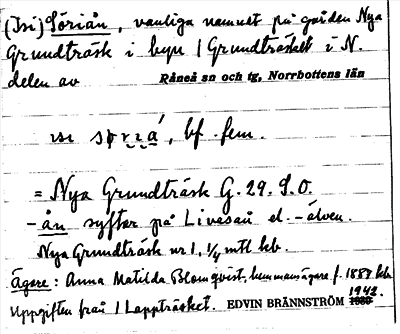 (Isi) Sörián, vanliga namnet på gården Nya
Grundträsk i byn 1 Grundträsket i N.
delen av Råneå sn och tg, Norrbottens län
bf. fem.
= Nya Grundträsk G. 29. S.O.
-ån syftar på Livesån el. -älven.
Nya Grundträsk nr 1, 1/4 mtl kb.
Ägare: Anna Matilda Blomqvist, hemmansägare f. 1887 kb.
Uppgiften från 1 Lappträsket. EDVIN BRÄNNSTRÖM 1942.